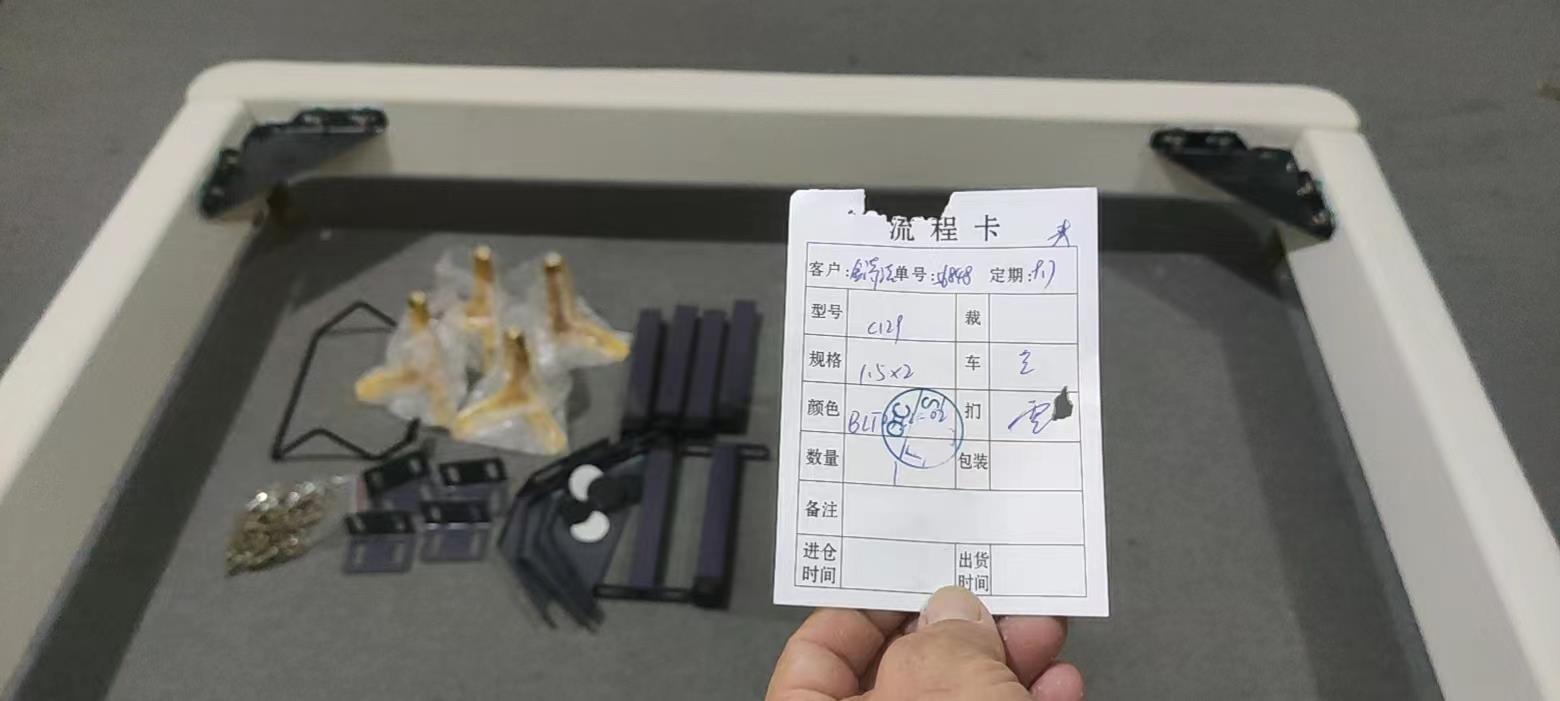 流程卡
客户: 单号: 6848 定期:
型号 C129 裁
规格 1.5×2 车
颜色 BLT -02 扪
数量 1 包装
备注
进仓时间 出货时间
QC